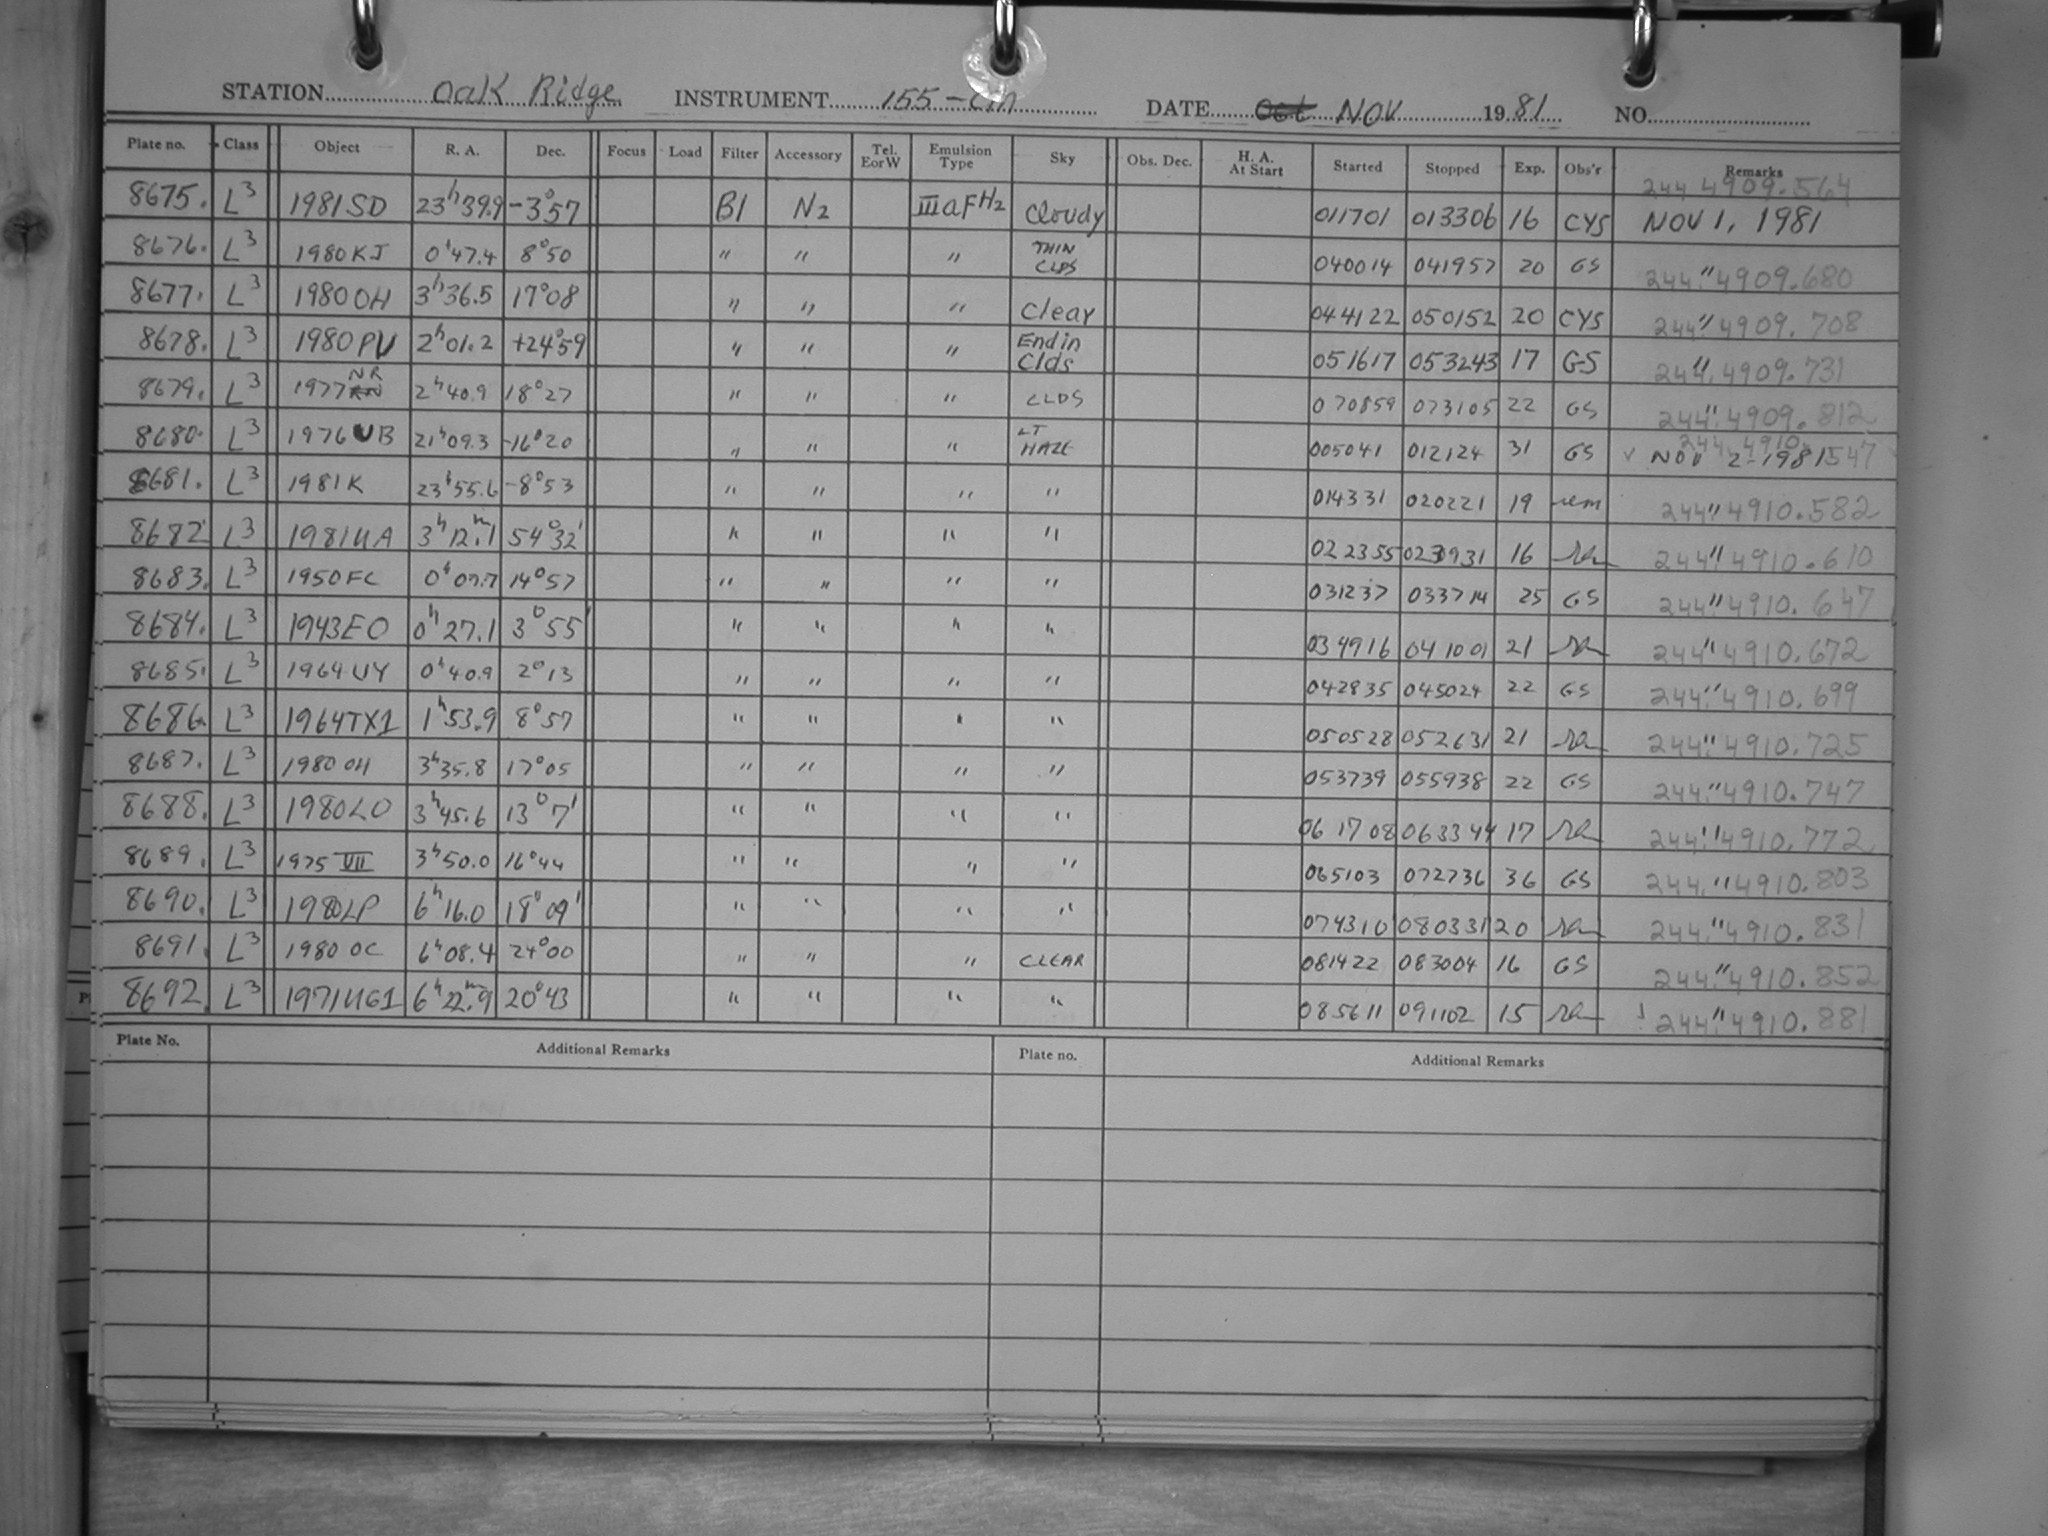 STATION Oak Ridge INSTRUMENT 155-cm DATE Oct NOV 1981 NO.
Plate no. Class Object R. A. Dec. Focus Load Filter Accessory Tel. E or W Emulsion Type Sky Obs. Dec. H. A. At Start Started Stopped Exp. Obs'r Remarks
244 4909.564
8675. L3 1981 SD 23h39.9 -3°57 B1 N2 IIIaF H2 Cloudy 011701 013306 16 CYS NOV 1, 1981
8676. L3 1980 KJ 0h47.4 8°50 " " " THIN CLDS 040014 041957 20 GS 244." 4909.680
8677. L3 1980 OH 3h36.5 17°08 " " " Clear 044122 050152 20 CYS 244" 4909.708
8678. L3 1980 PV 2h01.2 +24°59 " " " End in Clds 051617 053243 17 GS 244". 4909.731
8679. L3 1977 NR 2h40.9 18°27 " " " CLDS 070859 073105 22 GS 244." 4909.812
8680. L3 1976 UB 21h09.3 -16°20 " " " LT HAZE 005041 012124 31 GS NOV 2-1981 244 4910.547
8681. L3 1981 K 23h55.6 -8°53 " " " " 014331 020221 19 244" 4910.582
8682 L3 1981 UA 3h12m.1 54°32' " " " " 022355 023931 16 244" 4910.610
8683. L3 1950 FC 0h07.7 14°57 " " " " 031237 033714 25 GS 244" 4910.647
8684. L3 1943 EO 0h27.1 3°55' " " " " 034916 041001 21 244" 4910.672
8685. L3 1964 UY 0h40.9 2°13 " " " " 042835 045024 22 GS 244." 4910.699
8686. L3 1964 TX1 1h53.9 8°57 " " " " 050528 052631 21 244" 4910.725
8687. L3 1980 OH 3h35.8 17°05 " " " " 053739 055938 22 GS 244." 4910.747
8688. L3 1980 LO 3h45.6 13°7' " " " " 061708 063344 17 244." 4910.772
8689. L3 1975 VII 3h50.0 16°44 " " " " 065103 072736 36 GS 244." 4910.803
8690. L3 1980 LP 6h16.0 18°09' " " " " 074310 080331 20 244." 4910.831
8691. L3 1980 OC 6h08.4 24°00 " " " CLEAR 081422 083004 16 GS 244." 4910.852
8692. L3 1971 UG1 6h22m.9 20°43 " " " " 085611 091102 15 244." 4910.881
Plate No. Additional Remarks Plate no. Additional Remarks